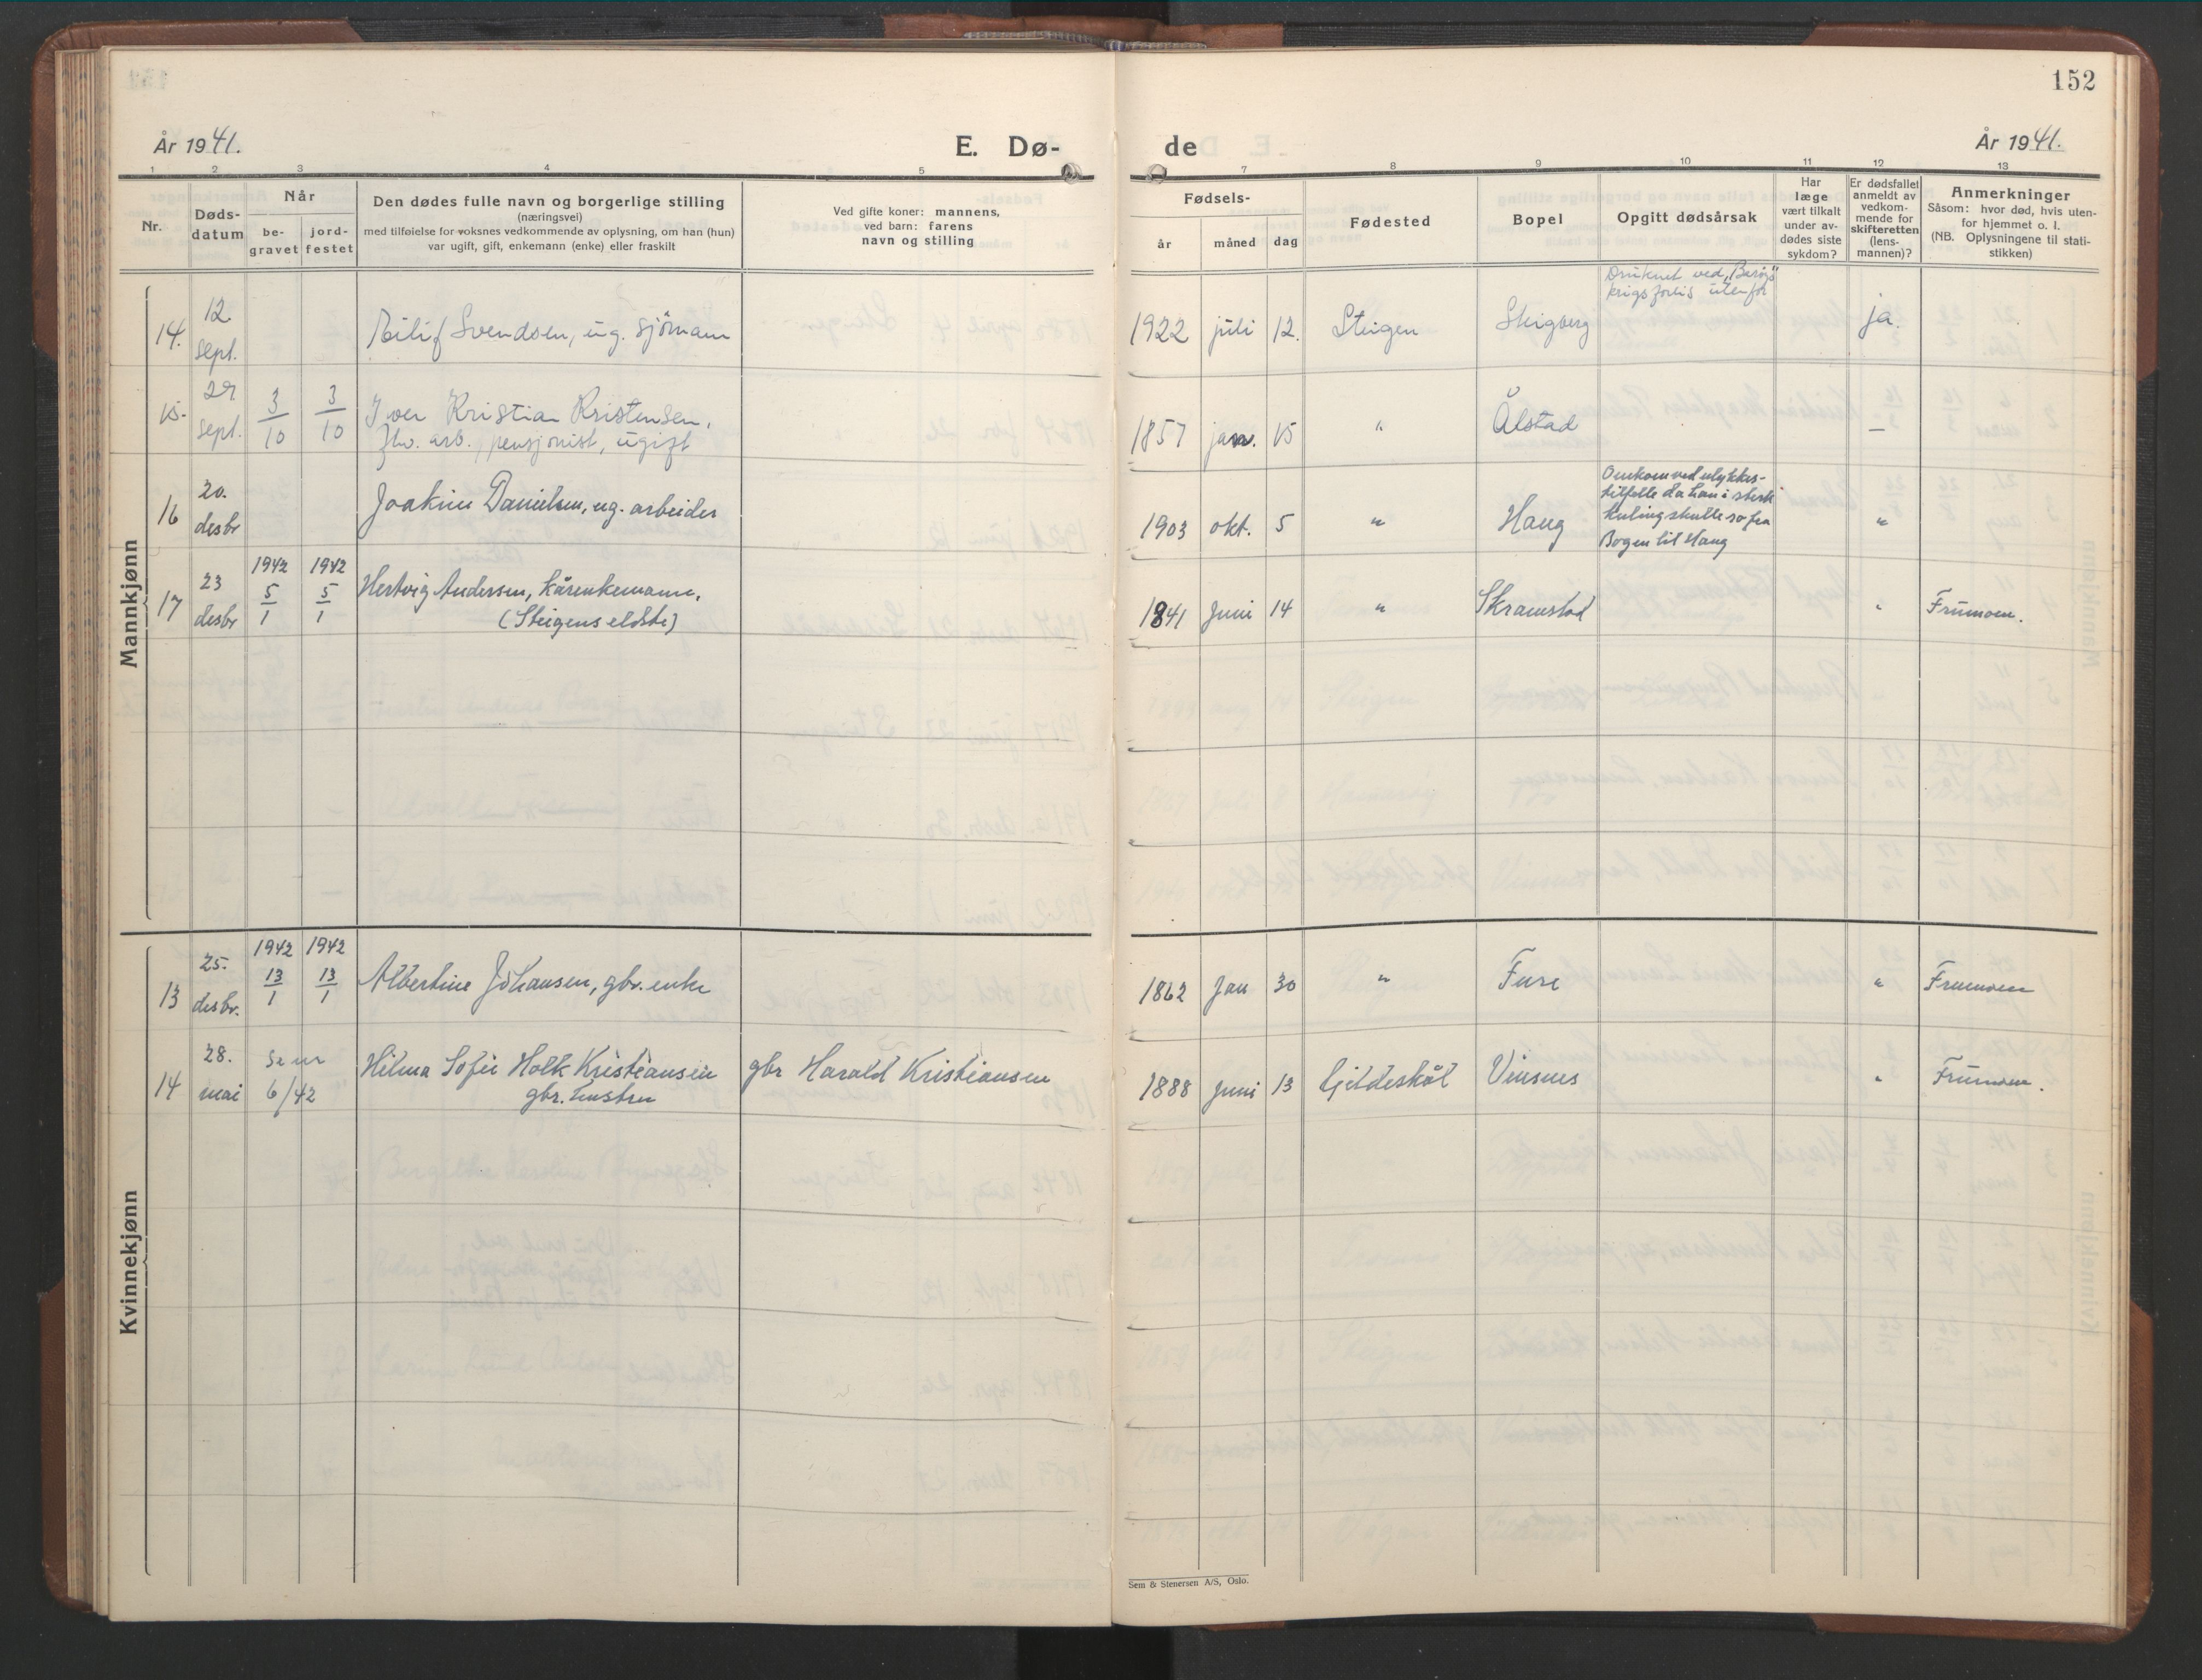 152
År 1941.
E. Dø-
de
År 1941.
1 2 3 4 5 7 8 9 10 11 12 13
Nr.
Døds-
datum
Når
be-
gravet
jord-
festet
Den dødes fulle navn og borgerlige stilling
(næringsvei)
med tilføielse for voksnes vedkommende av oplysning, om han (hun)
var ugift, gift, enkemann (enke) eller fraskilt
Ved gifte koner: mannens,
ved barn: farens
navn og stilling
Fødsels-
år
måned
dag
Fødested
Bopel
Opgitt dødsårsak
Har
læge
vært tilkalt
under av-
dødes siste
sykdom?
Er dødsfallet
anmeldt av
vedkom-
mende for
skifteretten
(lens-
mannen)?
Anmerkninger
Såsom: hvor død, hvis uten-
for hjemmet o. l.
(NB. Oplysningene til stati-
stikken)
Mannkjønn
14. 12. sept. Eilif Svendsen, ug. sjömann 1922 juli 12. Steigen Skigberg Druknet ved krigsforlis utenfor ja.
15. 29 sept. 3/10 3/10 Iver Kristian Kristensen, fhv. arb., pensjonist, ugift 1857 jan. 15 " Ålstad —
16 20. desbr Joakim Danielsen, ug. arbeider 1903 okt. 5 " Haug Omkom ved ulykkes-
tilfelle da han i sterk
kuling skulle ro fra
Bogen til Haug "
17 23 desbr 1942 5/1 1942 5/1 Hertvig Andersen, kårenkemann,
(Steigens eldste) 1841 Juni 14 " Skramstad " Frumoen.
Kvinnekjønn
13 25. desbr. 1942 13/1 1942 13/1 Albertine Johansen, gbr. enke 1862 Jan 30 " Fure " Frumoen
14 28. mai 6/42 Hilma Sofie Holk Kristiansen
gbr. hustru gbr Harald Kristiansen 1888 Juni 13 Gildeskål Vinsnes " Frumoen.
Sem & Stenersen A/S, Oslo.